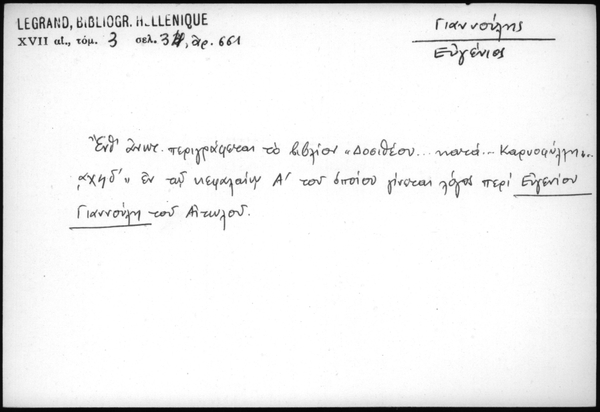 LEGRAND, BIBLIOGR. HELLENIQUE
XVII αἰ., τόμ. 3 σελ. 31, ἀρ. 661
Γιαννούλης
Εὐγένιος
Ἔνθ' ἀνωτ. περιγράφεται τὸ βιβλίον «Δοσιθέου... κατὰ... Καρυοφύλλη...
͵αχϟδ´» ἐν τῷ κεφαλαίῳ Α´ τοῦ ὁποίου γίνεται λόγος περὶ Εὐγενίου
Γιαννούλη τοῦ Αἰτωλοῦ.